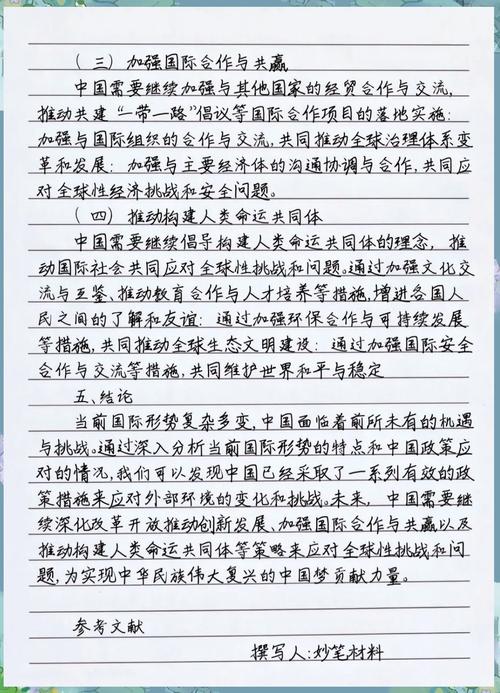 (三) 加强国际合作与共赢
中国需要继续加强与其他国家的经贸合作与交流,
推动共建“一带一路”倡议等国际合作项目的落地实施;
加强与国际组织的合作与交流,共同推动全球治理体系变
革和发展; 加强与主要经济体的沟通协调与合作,共同应
对全球性经济挑战和安全问题。
(四) 推动构建人类命运共同体
中国需要继续倡导构建人类命运共同体的理念, 推
动国际社会共同应对全球性挑战和问题。通过加强文化交
流与互鉴、推动教育合作与人才培养等措施,增进各国人
民之间的了解和友谊; 通过加强环保合作与可持续发展
等措施,共同推动全球生态文明建设; 通过加强国际安全
合作与交流等措施,共同维护世界和平与稳定
五、结论
当前国际形势复杂多变,中国面临着前所未有的机遇
与挑战。通过深入分析当前国际形势的特点和中国政策应
对的情况,我们可以发现中国已经采取了一系列有效的政
策措施来应对外部环境的变化和挑战。未来, 中国需要继
续深化改革开放推动创新发展、加强国际合作与共赢以及
推动构建人类命运共同体等策略来应对全球性挑战和问
题,为实现中华民族伟大复兴的中国梦贡献力量。
参考文献
撰写人:妙笔材料